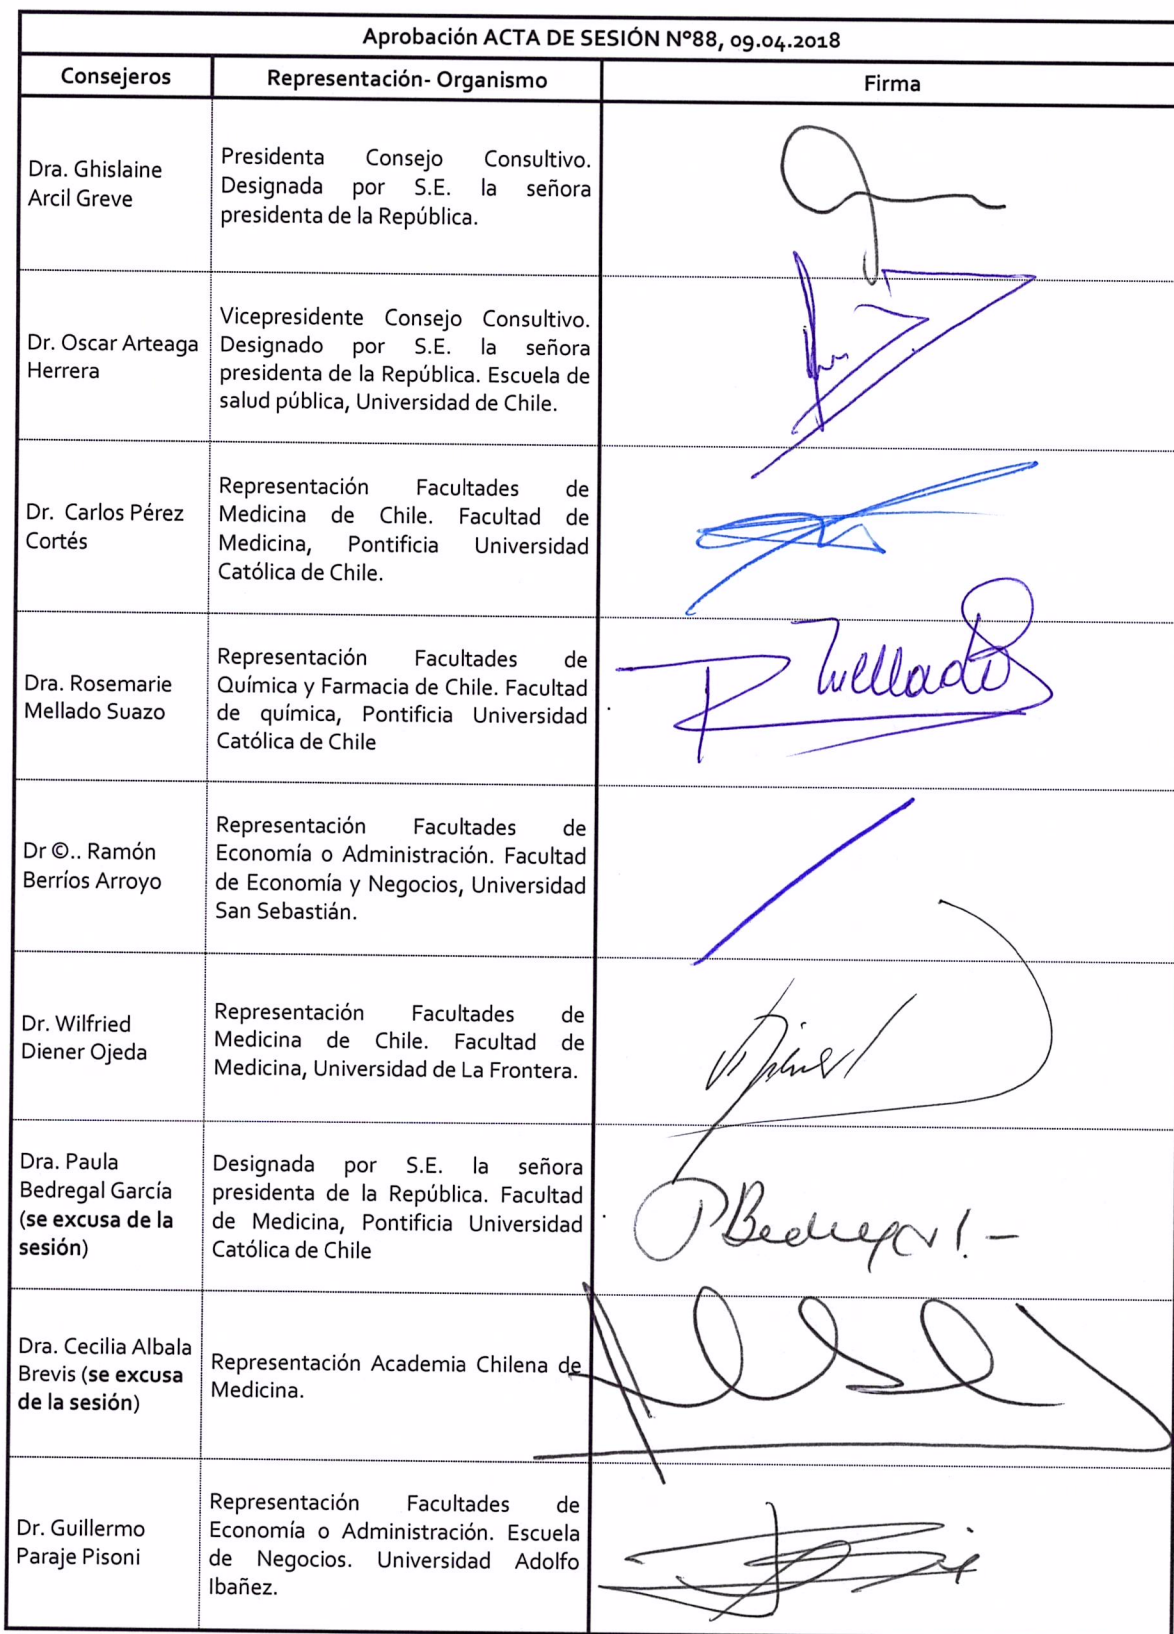 Aprobación ACTA DE SESIÓN Nº88, 09.04.2018
Consejeros
Representación- Organismo
Firma
Dra. Ghislaine
Arcil Greve
Presidenta Consejo Consultivo.
Designada por S.E. la señora
presidenta de la República.
Dr. Oscar Arteaga
Herrera
Vicepresidente Consejo Consultivo.
Designado por S.E. la señora
presidenta de la República. Escuela de
salud pública, Universidad de Chile.
Dr. Carlos Pérez
Cortés
Representación Facultades de
Medicina de Chile. Facultad de
Medicina, Pontificia Universidad
Católica de Chile.
Dra. Rosemarie
Mellado Suazo
Representación Facultades de
Química y Farmacia de Chile. Facultad
de química, Pontificia Universidad
Católica de Chile
R Mellado S
Dr ©.. Ramón
Berríos Arroyo
Representación Facultades de
Economía o Administración. Facultad
de Economía y Negocios, Universidad
San Sebastián.
Dr. Wilfried
Diener Ojeda
Representación Facultades de
Medicina de Chile. Facultad de
Medicina, Universidad de La Frontera.
Dra. Paula
Bedregal García
(se excusa de la
sesión)
Designada por S.E. la señora
presidenta de la República. Facultad
de Medicina, Pontificia Universidad
Católica de Chile
P Bedregal.-
Dra. Cecilia Albala
Brevis (se excusa
de la sesión)
Representación Academia Chilena de
Medicina.
Dr. Guillermo
Paraje Pisoni
Representación Facultades de
Economía o Administración. Escuela
de Negocios. Universidad Adolfo
Ibañez.